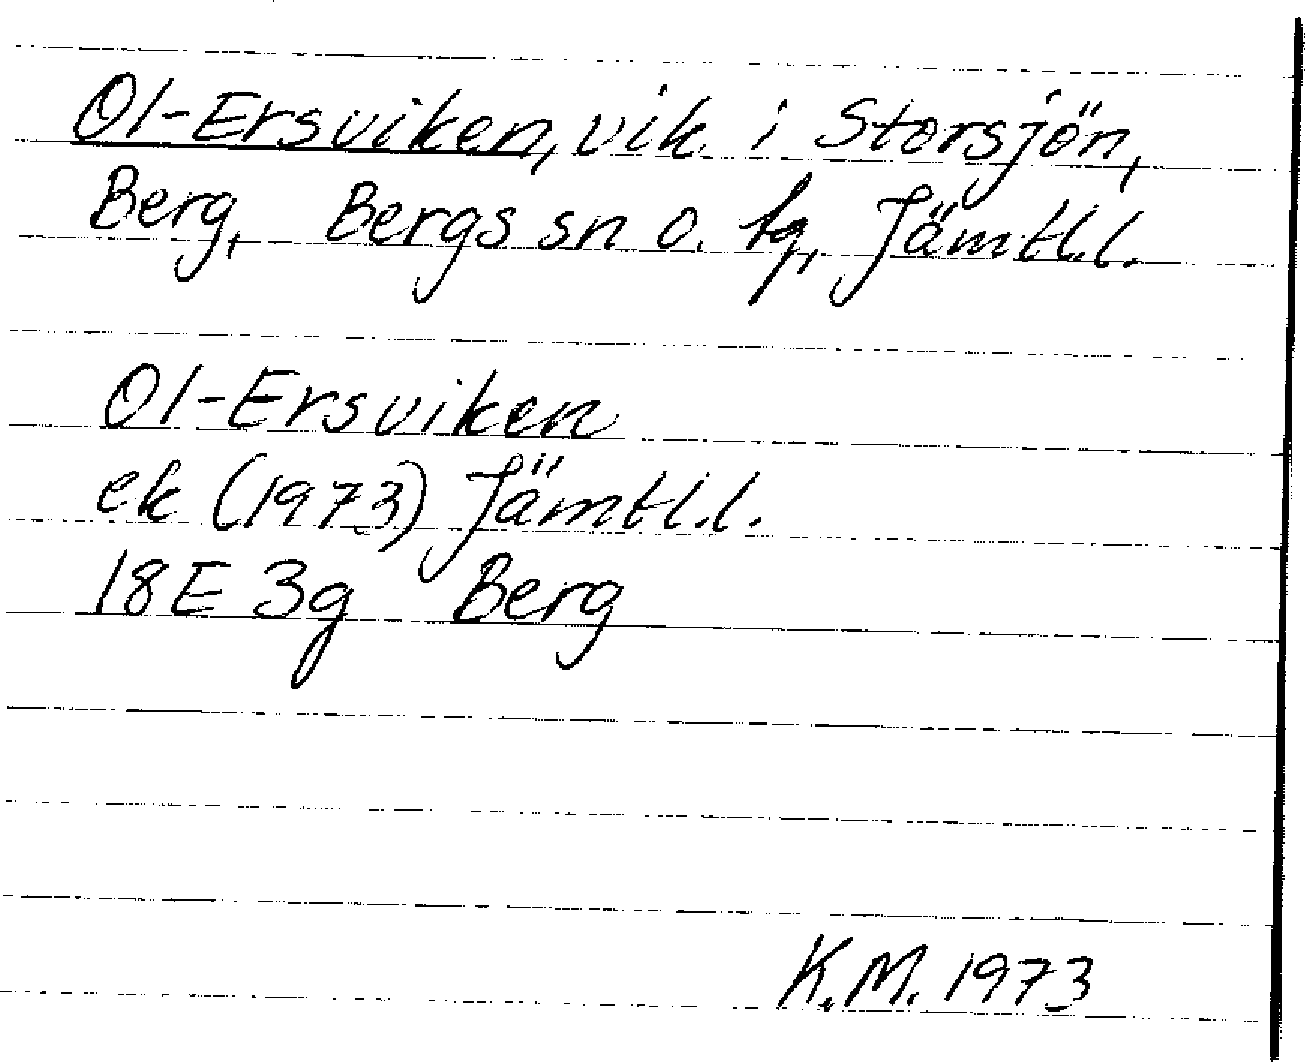 Ol-Ersviken, vik i Storsjön,
Berg, Bergs sn o. tg, Jämtl.l.
Ol-Ersviken
ek (1973) Jämtl.l.
18E 3g Berg
K.M. 1973